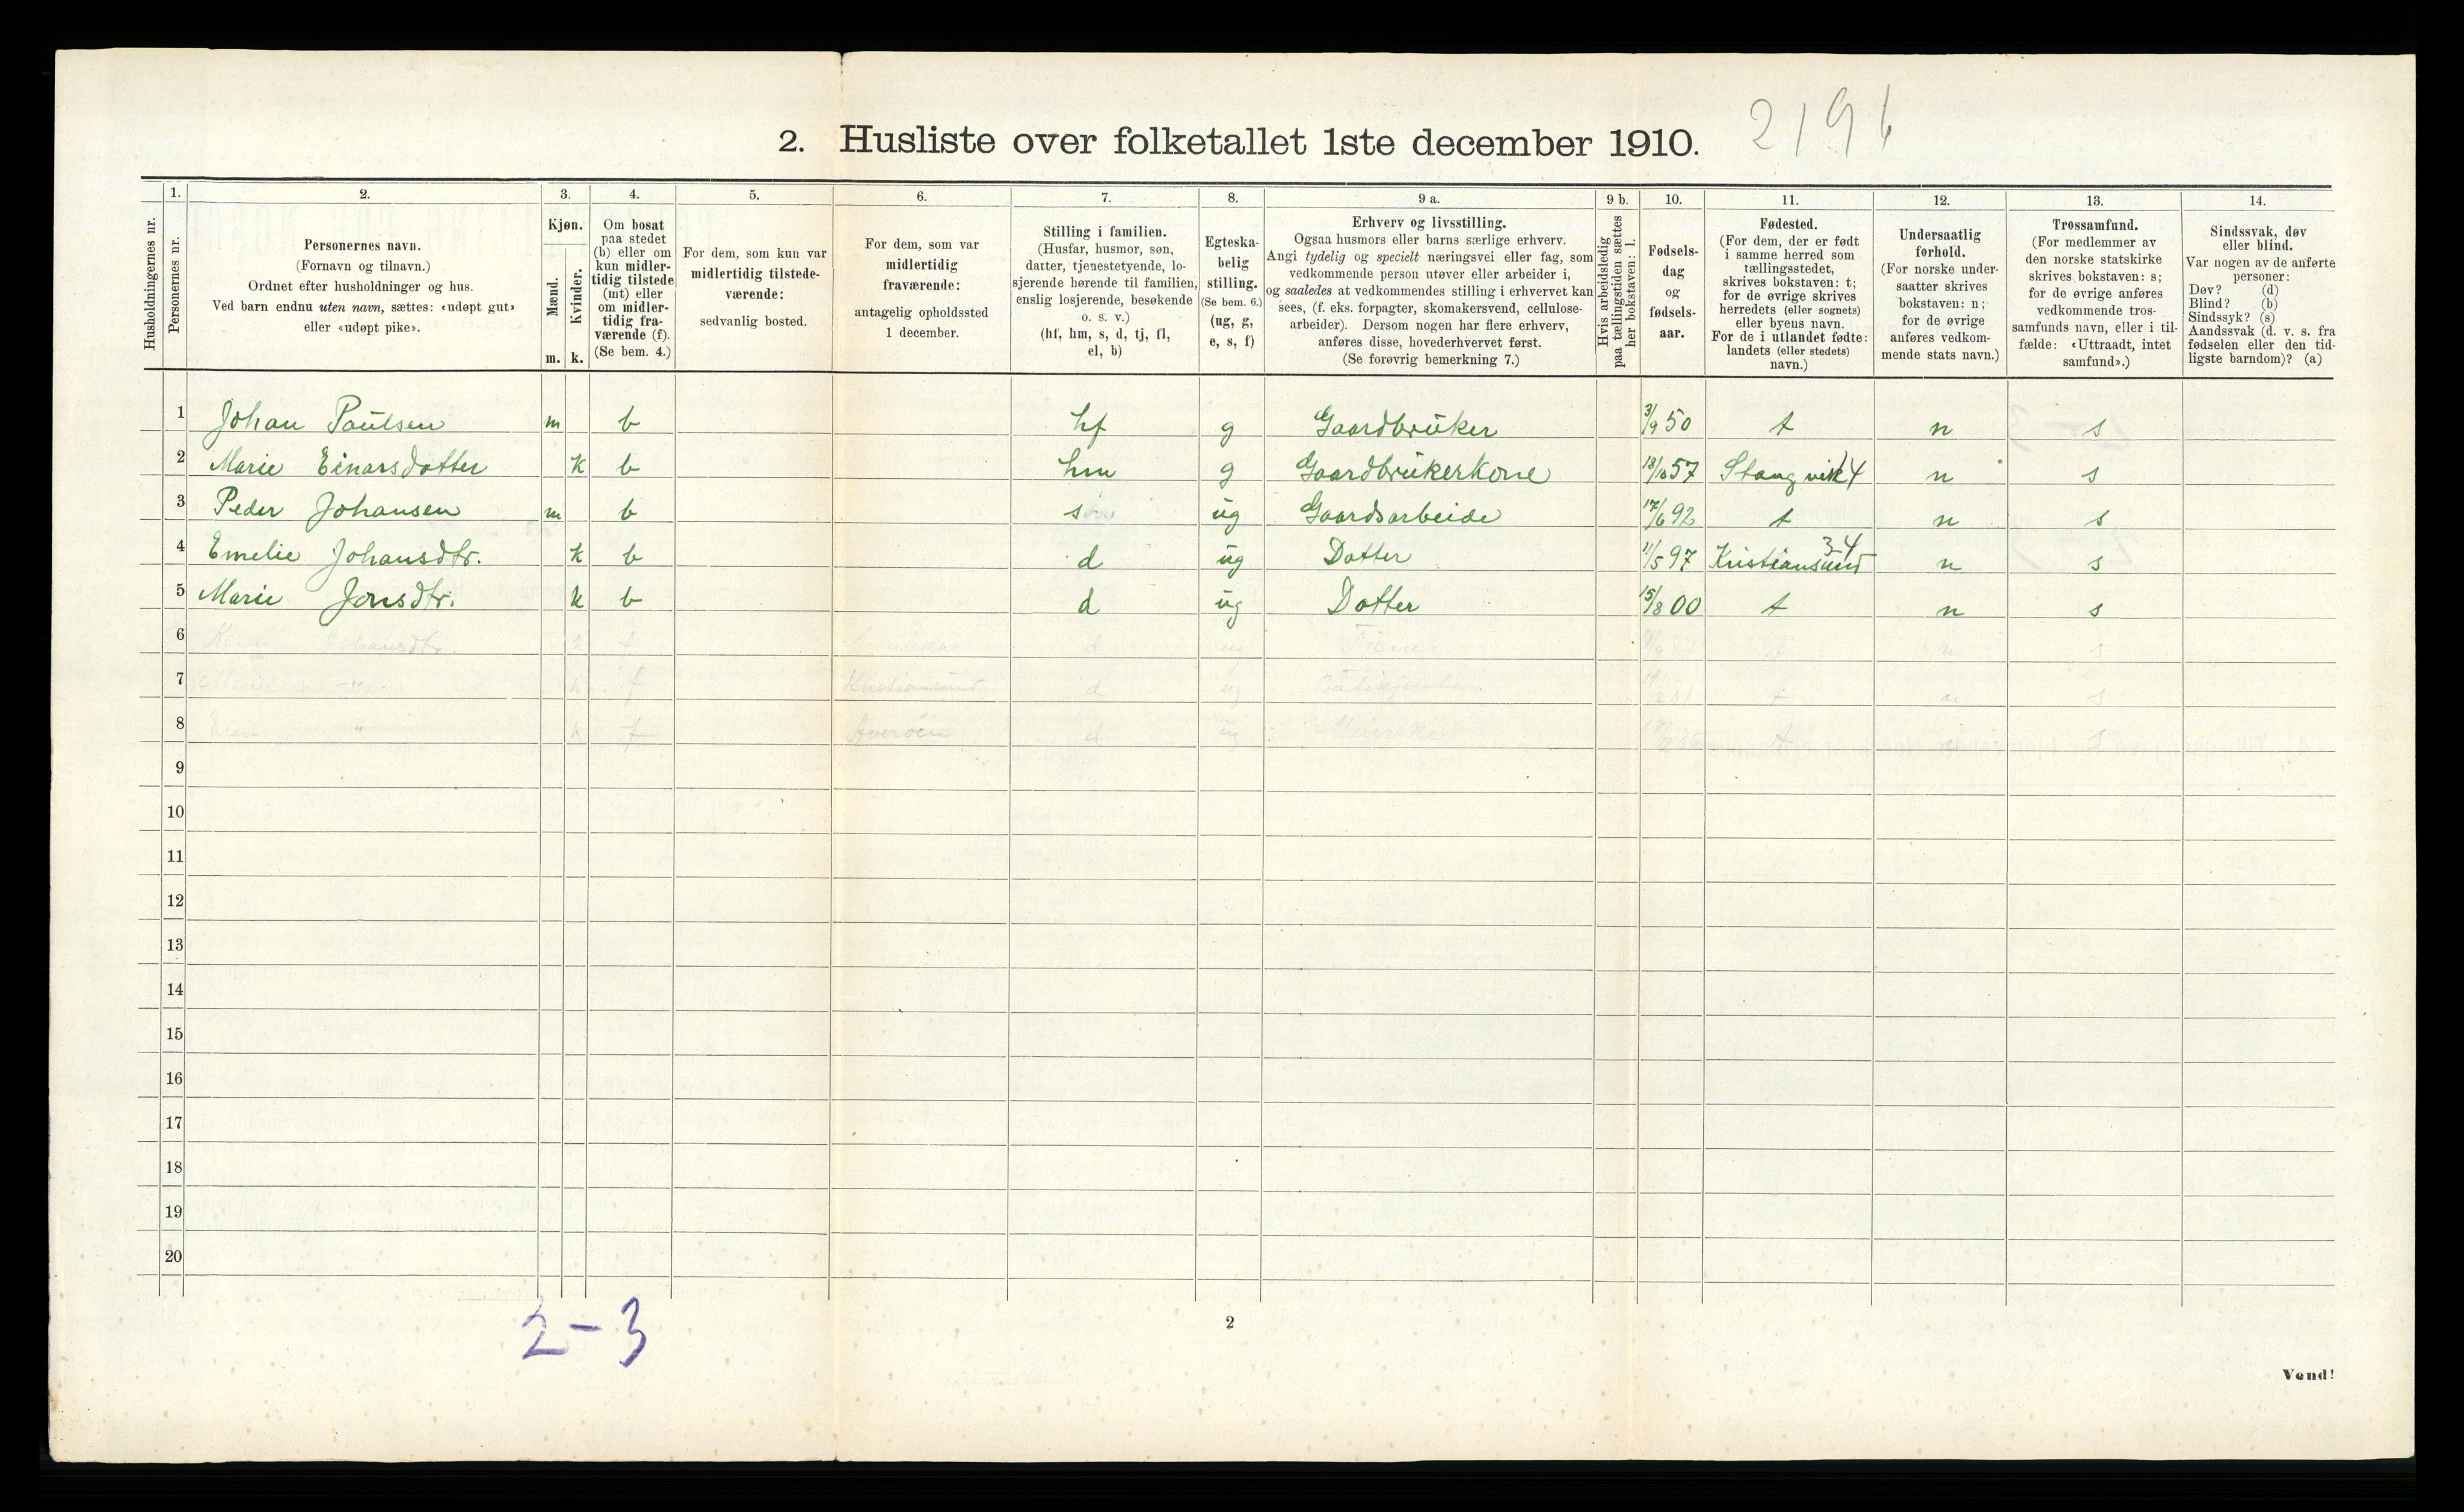 2191
2. Husliste over folketallet 1ste december 1910.
Husholdningernes nr.
1. Personernes nr.
2. Personernes navn.
(Fornavn og tilnavn.)
Ordnet efter husholdninger og hus.
Ved barn endnu uten navn, sættes: «udøpt gut»
eller «udøpt pike».
3. Kjøn.
Mænd. m.
Kvinder. k.
4. Om bosat
paa stedet
(b) eller om
kun midler-
tidig tilstede
(mt) eller
om midler-
tidig fra-
værende (f).
(Se bem. 4.)
5. For dem, som kun var
midlertidig tilstede-
værende:
sedvanlig bosted.
6. For dem, som var
midlertidig
fraværende:
antagelig opholdssted
1 december.
7. Stilling i familien.
(Husfar, husmor, søn,
datter, tjenestetyende, lo-
sjerende hørende til familien,
enslig losjerende, besøkende
o. s. v.)
(hf, hm, s, d, tj, fl,
el, b)
8. Egteska-
belig
stilling.
(Se bem. 6.)
(ug, g,
e, s, f)
9 a. Erhverv og livsstilling.
Ogsaa husmors eller barns særlige erhverv.
Angi tydelig og specielt næringsvei eller fag, som
vedkommende person utøver eller arbeider i,
og saaledes at vedkommendes stilling i erhvervet kan
sees, (f. eks. forpagter, skomakersvend, cellulose-
arbeider). Dersom nogen har flere erhverv,
anføres disse, hovederhvervet først.
(Se forøvrig bemerkning 7.)
9 b. Hvis arbeidsledig
paa tællingstiden sættes
her bokstaven: l.
10. Fødsels-
dag
og
fødsels-
aar.
11. Fødested.
(For dem, der er født
i samme herred som
tællingsstedet,
skrives bokstaven: t;
for de øvrige skrives
herredets (eller sognets)
eller byens navn.
For de i utlandet fødte:
landets (eller stedets)
navn.)
12. Undersaatlig
forhold.
(For norske under-
saatter skrives
bokstaven: n;
for de øvrige
anføres vedkom-
mende stats navn.)
13. Trossamfund.
(For medlemmer av
den norske statskirke
skrives bokstaven: s;
for de øvrige anføres
vedkommende tros-
samfunds navn, eller i til-
fælde: «Uttraadt, intet
samfund».)
14. Sindssvak, døv
eller blind.
Var nogen av de anførte
personer:
Døv? (d)
Blind? (b)
Sindssyk? (s)
Aandssvak (d. v. s. fra
fødselen eller den tid-
ligste barndom)? (a)
1 Johan Paulsen m b hf g Gaardbruker 3/9 50 t n s
2 Marie Einarsdatter k b hm g Gaardbrukerkone 57 Stangvik 4 n s
3 Peder Johansen m b s ug Gaardsarbeide 17/6 92 t n s
4 Emelie Johansdtr. k b d ug Datter 11/5 97 Kristiansund 34 n s
5 Marie Jonsdtr. k b d ug Datter 15/8 00 t n s
6 Johansdtr. k f d ug t n s
7 k f Kristiansund d ug t n s
8 " k f Averøen d ug t n s
9
10
11
12
13
14
15
16
17
18
19
20
2-3
2
Vend!